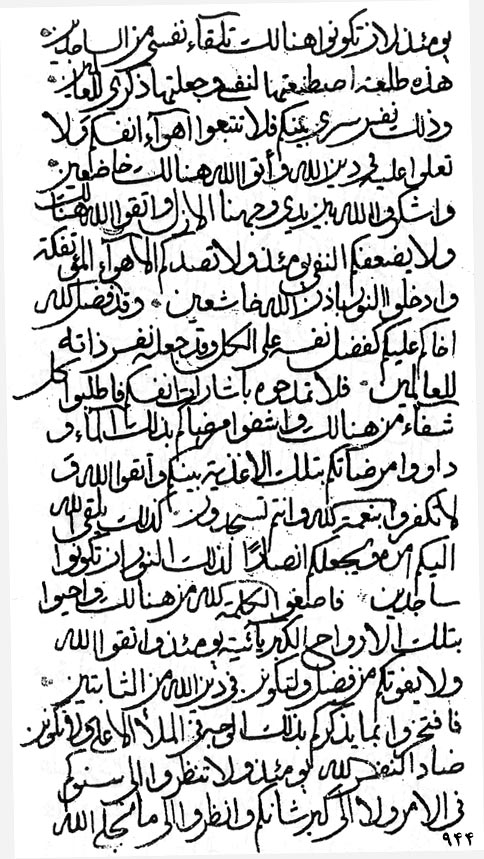 يومئذ لان تكونوا هنالك تلقاء نفسي من الساجدين
هذه طلعة اصطنعتها لنفسي وجعلتها ذكرى للعالمين
وذلك نفس سري بينكم فلا تتبعوا اهوآء انفسكم ولا
تعلوا عليه في دين الله وأتوا الله هنالك خاضعين
واشكروا الله بين يدي وجهنا الازل واتقوا الله هنالك
ولا يضعفكم النفس يومئذ ولا تصدكم الاهوآء المؤتفكة
وادخلوا النور باذن الله خاشعين وقد فضل الله
اخاكم عليكم كفضل نفسه على الكل وقد جعله نفس ذاته
للعالمين فلا تمدحوه باشارات انفسكم فاطلبوا كل
شفاء من هنالك واشفوا مرضاكم بذلك الماء و
داووا مرضاتكم بتلك الاغذية بينكم وأتقوا الله و
لا تكفروا بنعمة الله وانتم تسجدون كذلك يلقي الله
اليكم من امره ليجعلكم انصارًا لذلك النور ان تكونوا
ساجدين فاصغوا لكلمة الله من هنالك واحيوا
بتلك الارواح الكبريآئية يومئذ واتقوا الله
ولا يفوتكم من فضل ولتكونن في دين الله من الثابتين
فافتخروا بما يذكركم بذلك الوحي في الملأ الاعلى ولا تكونن
ضادا لنفس الله يومئذ ولا تنظروا الى سنوكم
في الامر ولا الى كبر شانكم وانظروا الى ما منحكم الله
٩٤٤